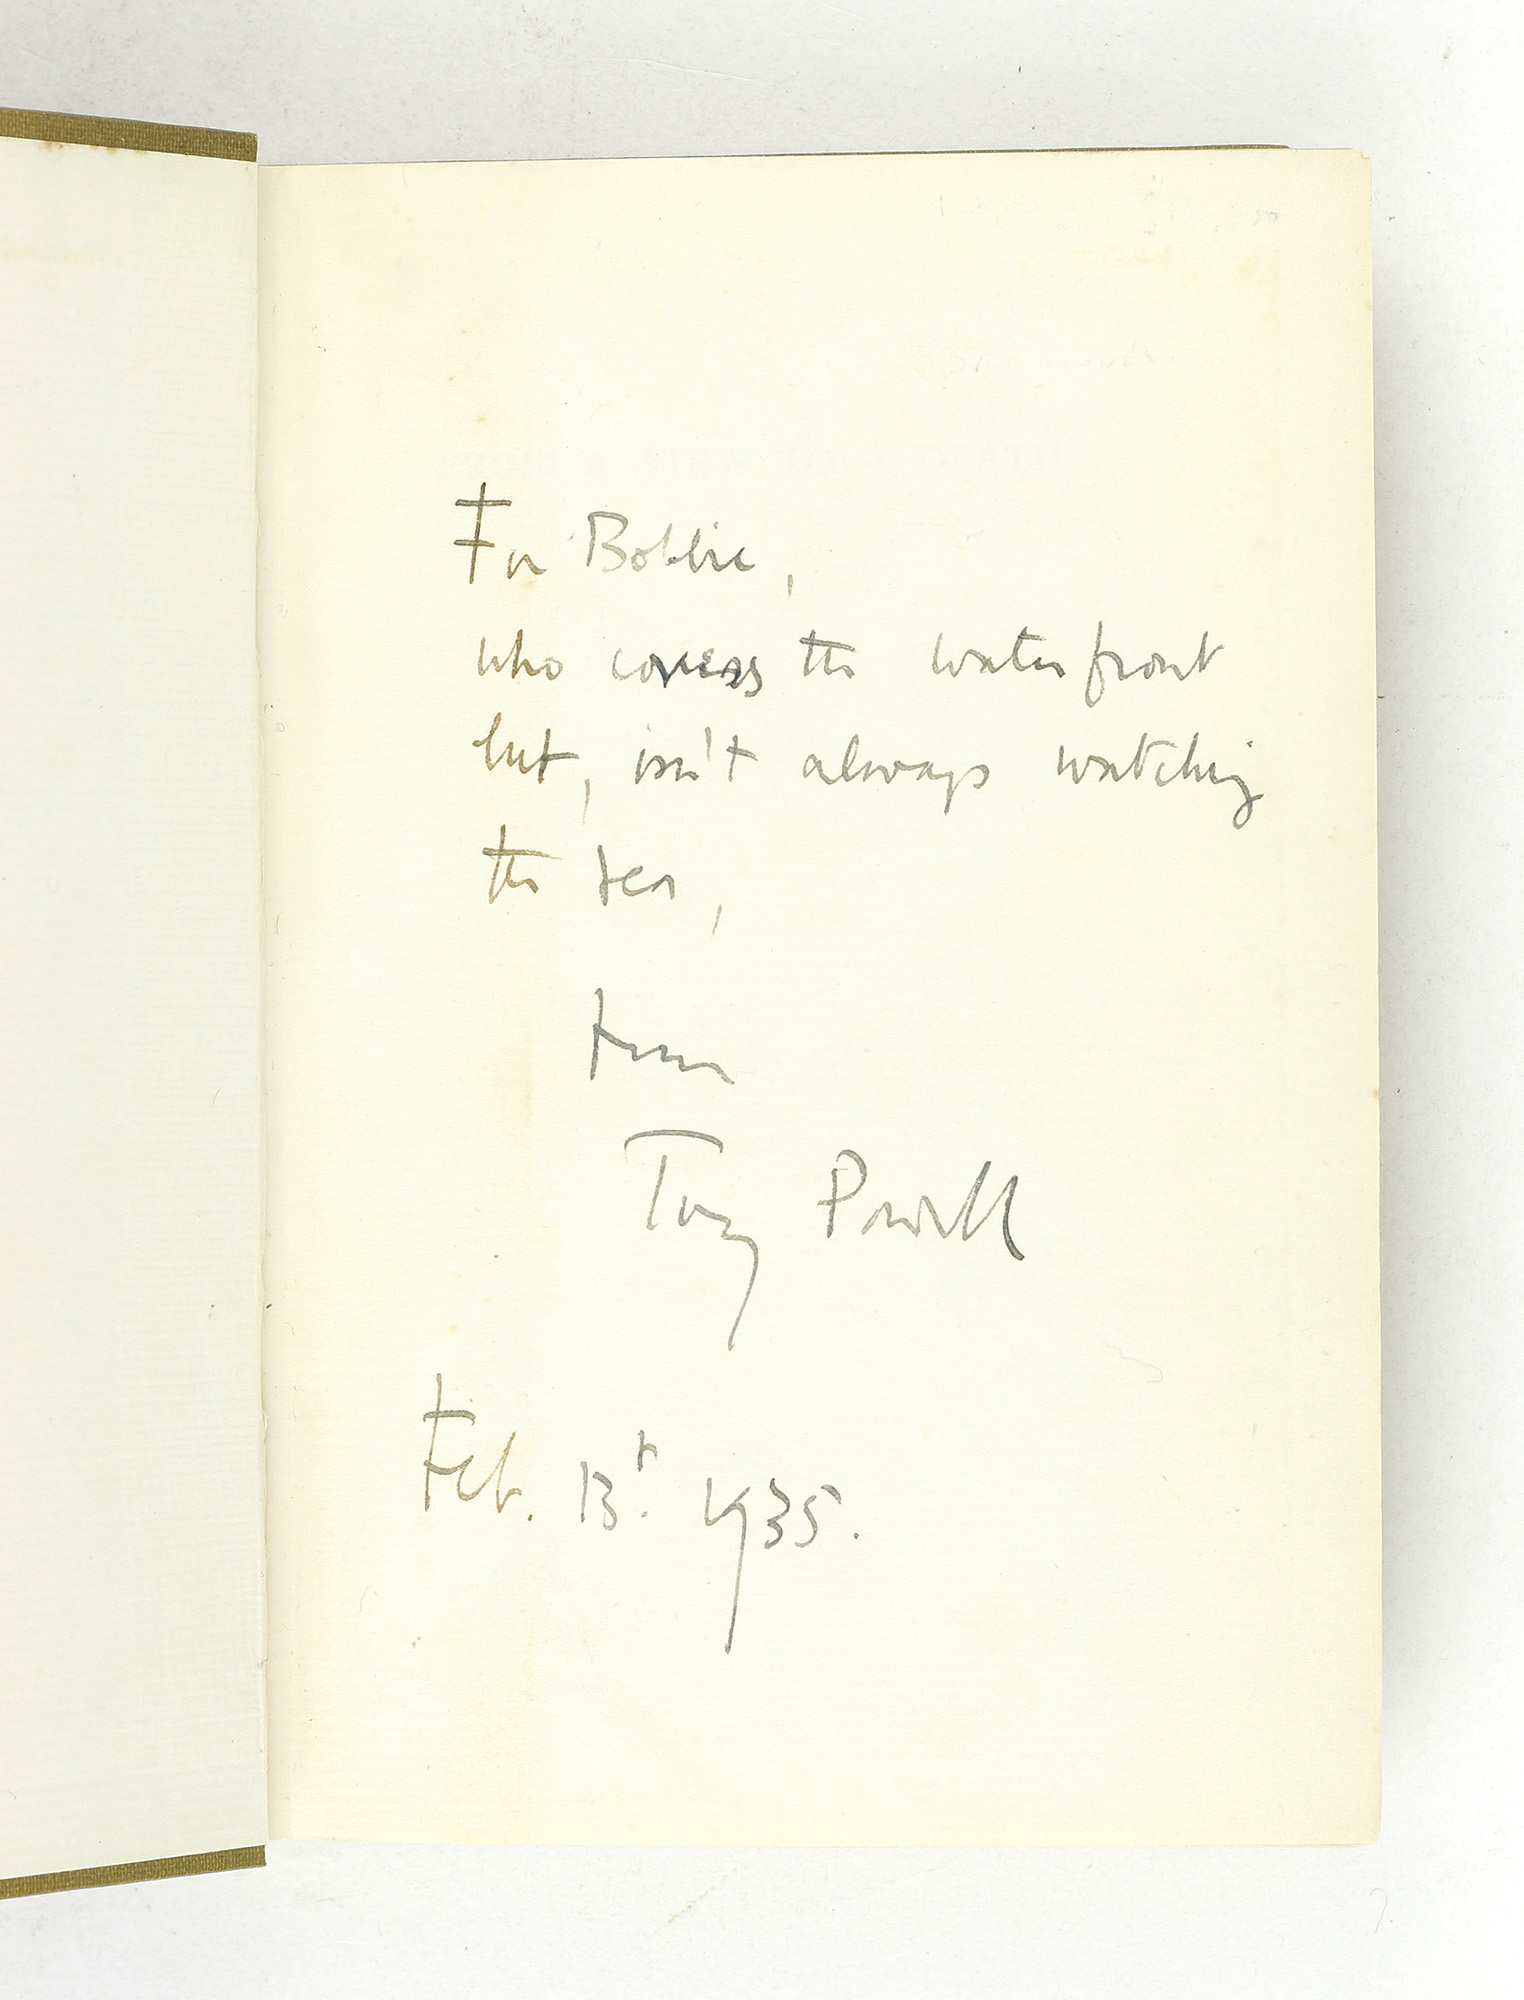 FROM A VIEW TO A DEATH
For Bobbie,
who covers the waterfront
but, isn't always watching
the sea,
from
Tony Powell
Feb. 13t. 1935.